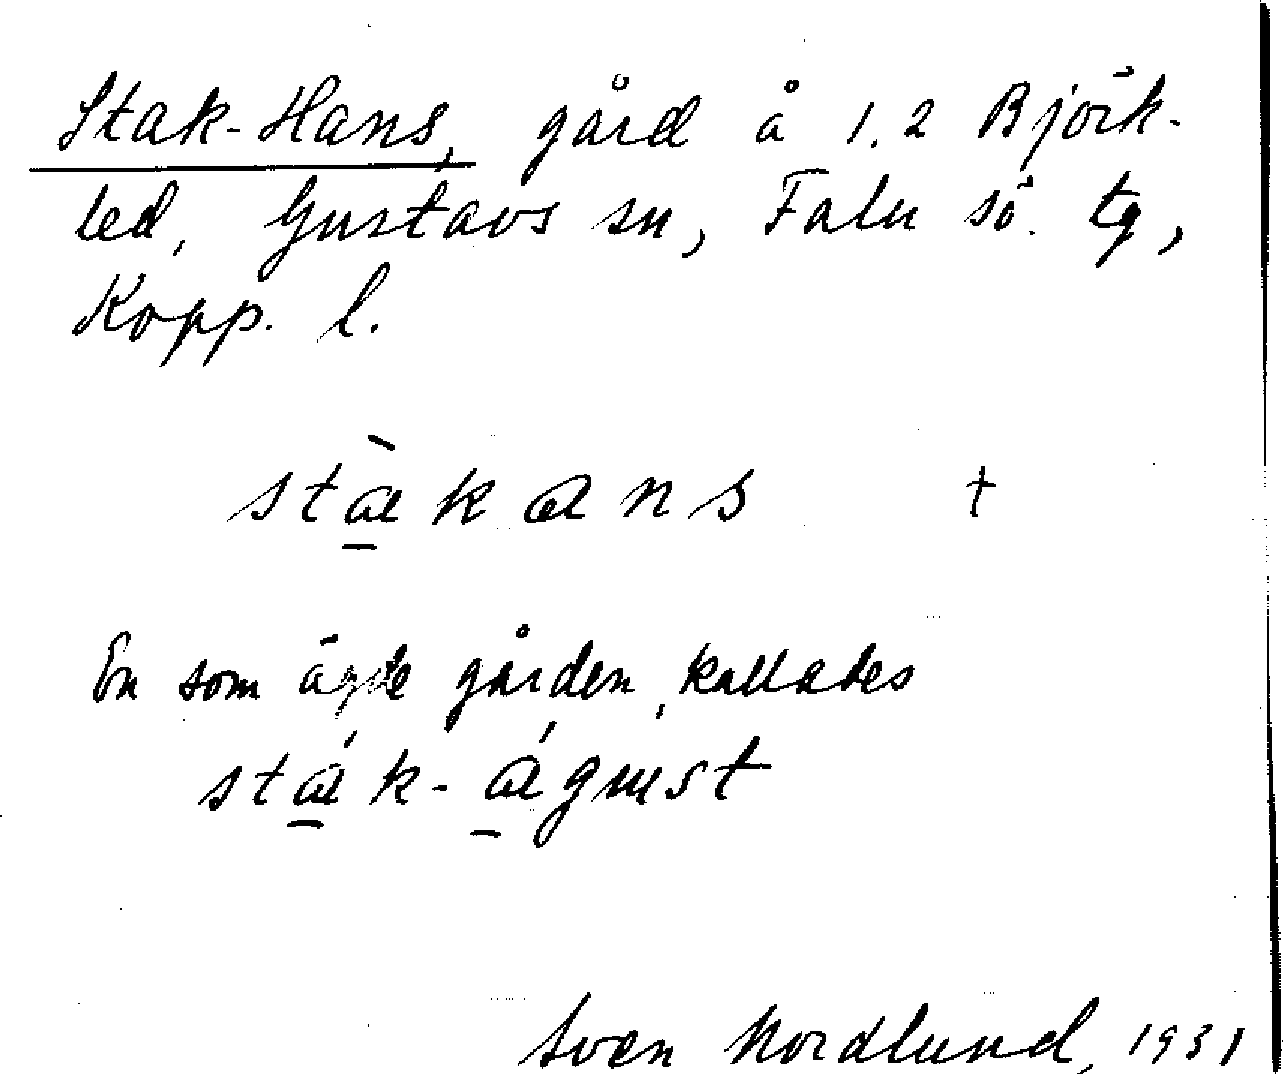 Stak-Hans, gård å 1.2 Björk-
led, Gustavs sn, Falu sö. tg,
Kopp. l.
stàkans †
En som ägde gården, kallades
sták-águst
Sven Nordlund, 1931